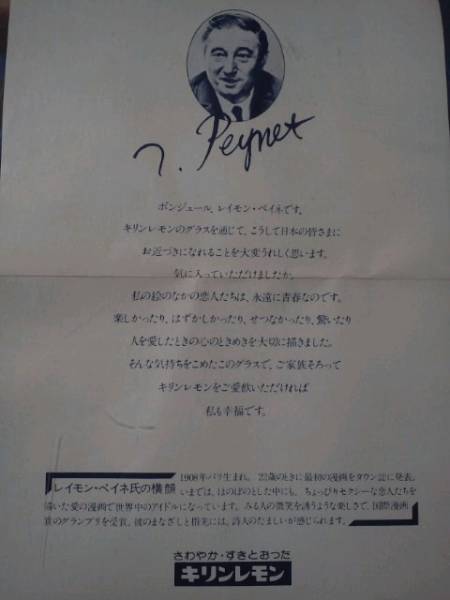 R. Peynet
ボンジュール、レイモン・ペイネです。
キリンレモンのグラスを通じて、こうして日本の皆さまに
お近づきになれることを大変うれしく思います。
気に入っていただけましたか。
私の絵のなかの恋人たちは、永遠に青春なのです。
楽しかったり、はずかしかったり、せつなかったり、驚いたり
人を愛したときの心のときめきを大切に描きました。
そんな気持ちをこめたこのグラスで、ご家族そろって
キリンレモンをご愛飲いただければ
私も幸福です。
レイモン・ペイネ氏の横顔
1908年パリ生まれ。22歳のときに最初の漫画をタウン誌に発表。
いまでは、ほのぼのとした中にも、ちょっぴりセクシーな恋人たちを
描いた愛の漫画で世界中のアイドルになっています。みる人の微笑を誘うような楽しさで、国際漫画
賞のグランプリを受賞。彼のまなざしと指先には、詩人のたましいが感じられます。
さわやか・すきとおった
キリンレモン